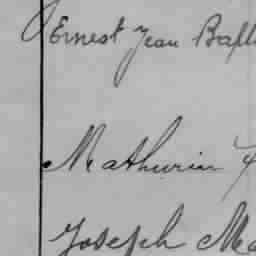 Ernest Jean Bapt
Mathurin
Joseph Ma